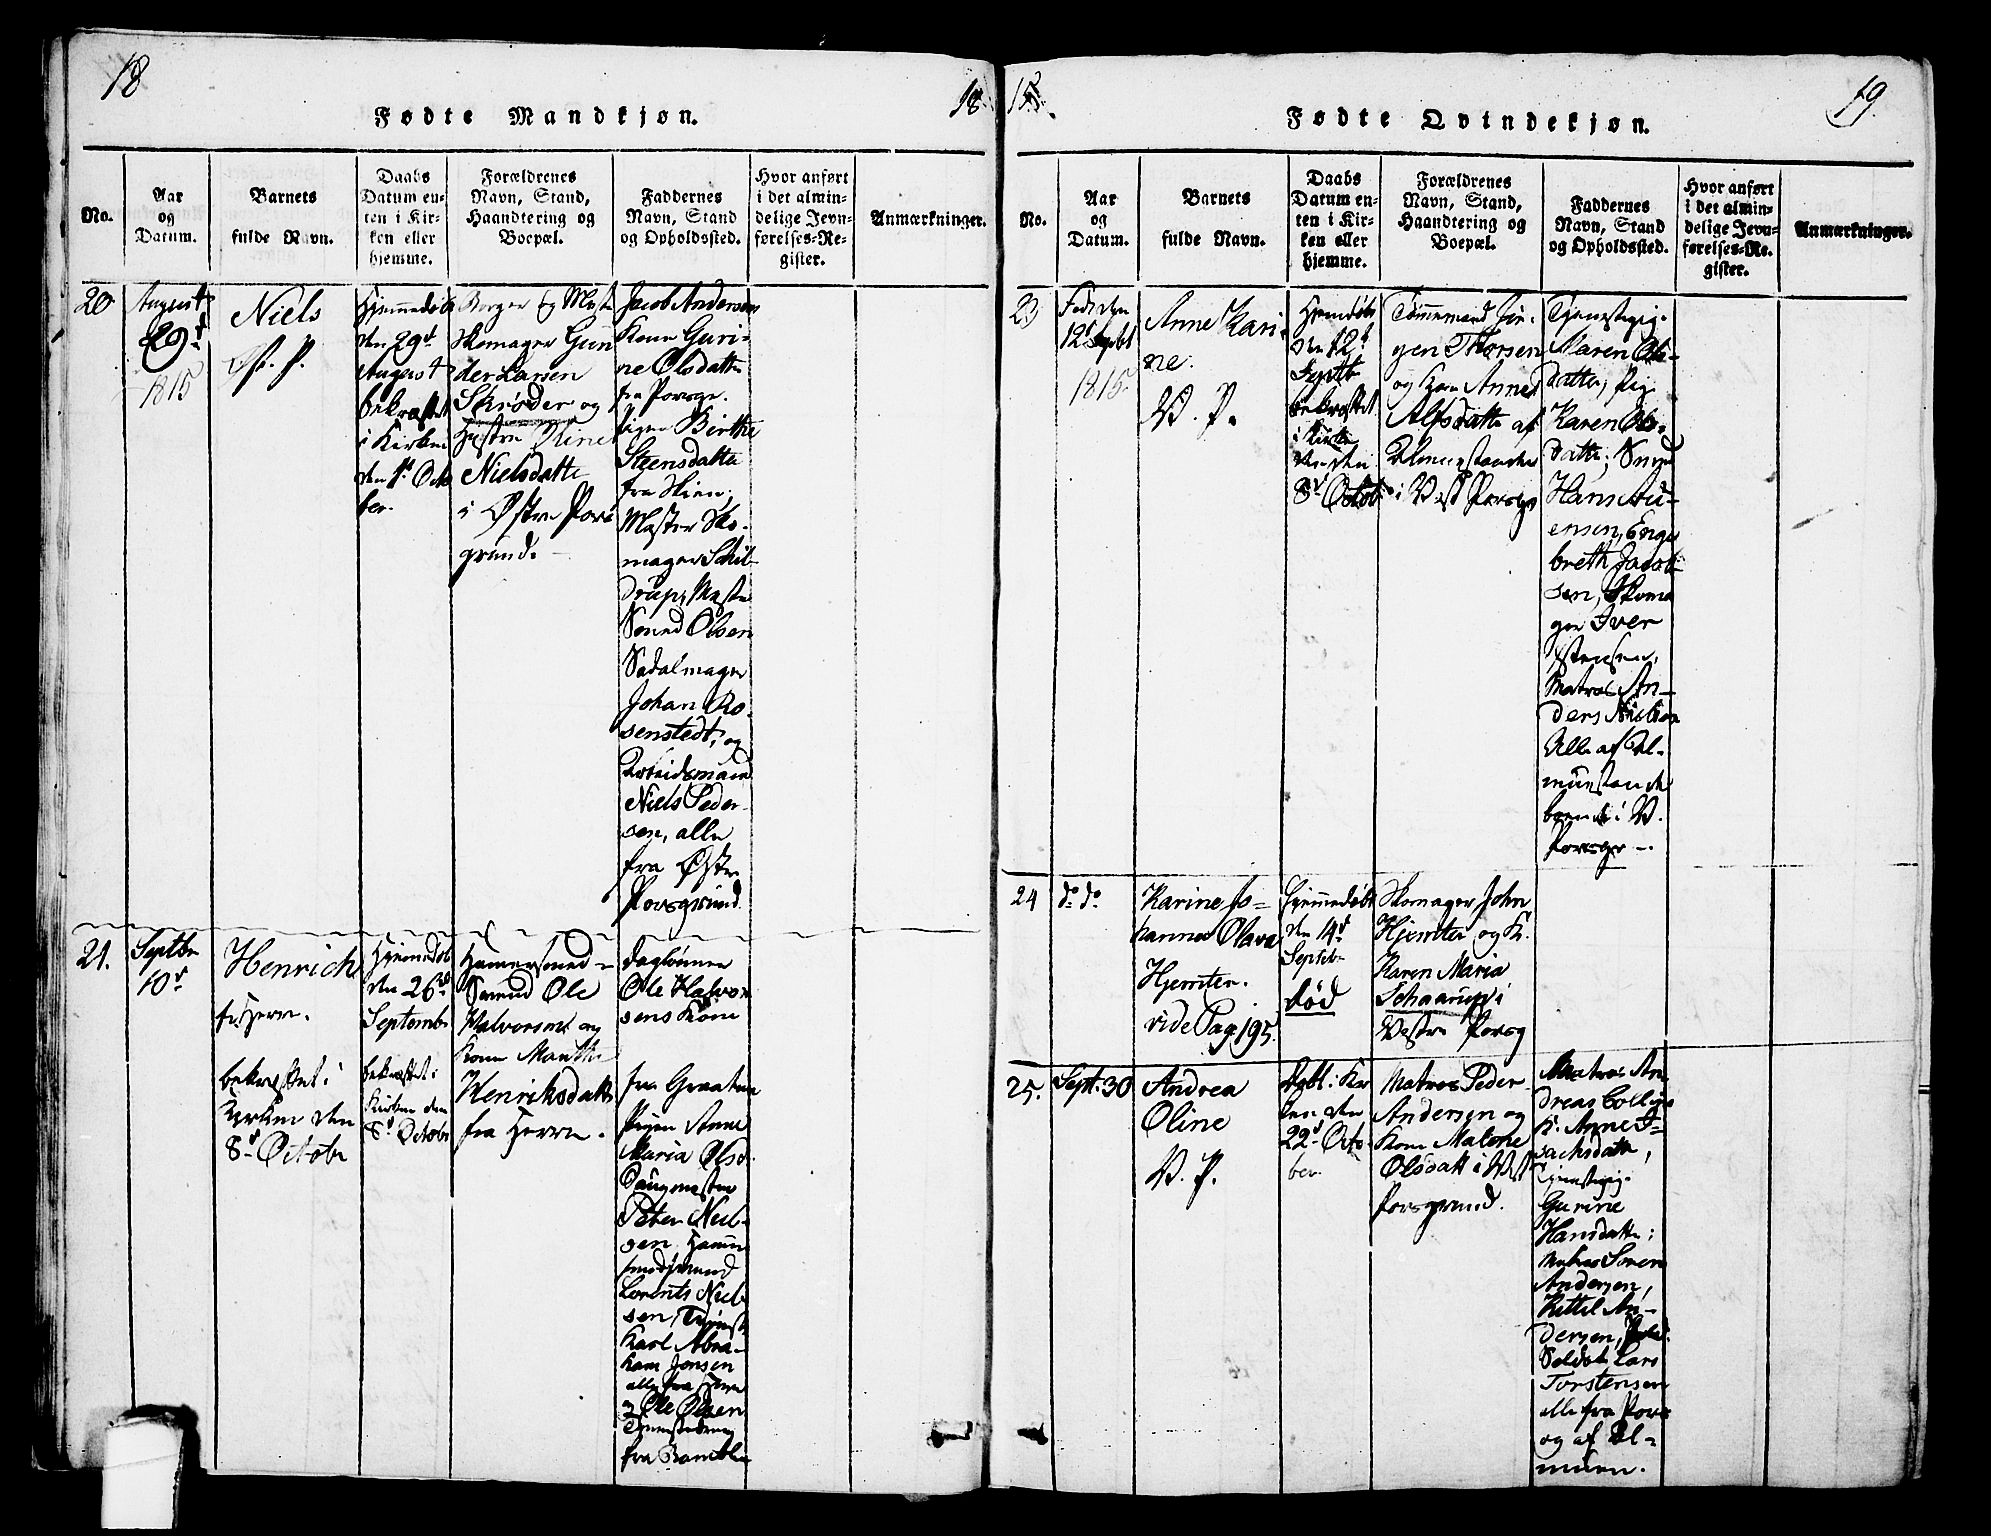 18
18
Fødte Mandkjøn.
No.
Aar
og
Datum.
Barnets
fulde Navn.
Daabs
Datum en-
ten i Kir-
ken eller
hjemme.
Forældrenes
Navn, Stand,
Haandtering og
Boepæl.
Faddernes
Navn, Stand
og Opholdssted.
Hvor anført
i det almin-
delige Jevn-
førelses-Re-
gister.
Anmærkninger.
20
August
29d
1815
Niels
Øst. P.
Hjemmedøbt
den 29d
August
bekræftet
i Kirken
den 1d Octo
ber.
Borger og Mest.
Skomager Gun
der Larsen
Skrøder og
Hustru
Nielsdatte
i Østre Pors
grund.
Jacob Andersens
Kone Guri-
ne Olsdatte
fra Porsgr.
Pigen Birthe
Steensdatte
fra Skien,
Mester Sko-
mager Schil-
drup, Mester
Svend Olsen
Sadalmager
Johan Ro-
senstedt, og
Arbeidsmand
Niels Peder-
sen, alle
fra Østre
Porsgrund.
21.
Septbr
10d
Henrich
fr. Herre.
bekræftet i
Kirken den
8d Octobr
Hjemmedøbt
den 26d
Septembr
bekræftet i
Kirken den
8d Octobr
Hammersmed-
Svend Ole
Halvorsen og
Kone Marthe
Henriksdatte
fra Herre.
Dagløнner
Ole Halvor
sens Kone
fra Graaten
Pigen Anne
Maria Olsd.
Peter Niel-
sen Hammer
smedsvend
Lorents Niel-
sen, Tjenest
Karl Abra-
ham Jonsen
alle fra Herre
og Ole Olsen
fra Bamble
19.
Fødte Qvindekjøn.
No.
Aar
og
Datum.
Barnets
fulde Navn.
Daabs
Datum en-
ten i Kir-
ken eller
hjemme.
Forældrenes
Navn, Stand,
Haandtering og
Boepæl.
Faddernes
Navn, Stand
og Opholdssted.
Hvor anført
i det almin-
delige Jevn-
førelses-Re-
gister.
Anmærkninger.
23
Født den
12d Septbr
1815
Anne Kari-
ne.
V. P.
Hjemdøbt
den 12d
Septb
bekræftet
i Kirke
den
8d Octob
Tømmermand Jør-
gen Thorsen
og Kone Anne
Alfsdatte af
Almuestanden
i Vest Porsgr
Tjenestepig.
Maren Ols-
datte, Pig.
Karen Ols-
datte, Svend
Hans
Enge
breth Jacob-
sen, Skoma
ger Iver
Matros An-
ders Nielsen
Alle af Al-
muestande
boende i V.
Porsgr.
24
do do
Karine Jo-
hanna Olava
Hjemter.
vide Pag 195.
Hjemmedøbt
den 14d
Septbr
død
Skomager John
Hjemter og K.
Karen Maria
Schaarup i
Vestre Porsg
25.
Sept. 30
Andrea
Oline
V. P.
Døbt i Kir
ken den
22d Octo-
ber
Matros Peder
Andersen og
Kone Malene
Olsdatt i Vest
Porsgrund.
Matros An
dreas
K. Anne I-
sachsdatte,
Tjenstepig.
Gurine
Hansdatte;
Matros Søren
Andersen,
Kittil An-
dersen,
Soldat Lars
Torstensen
alle fra Pors
og af Al-
muen.